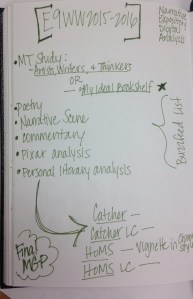 E9WW2015-2016
Narrative
Expository
Digital
Analysis
• MT Study:
- Artists, Writers, & Thinkers
OR
- My Ideal Bookshelf ★
• Poetry
• Narrative Scene
• Commentary
• Pixar analysis
• Personal literary analysis
Buzzfeed List
Catcher -
Catcher LC -
HoMS - Vignette in
HoMS LC -
Final
MGP